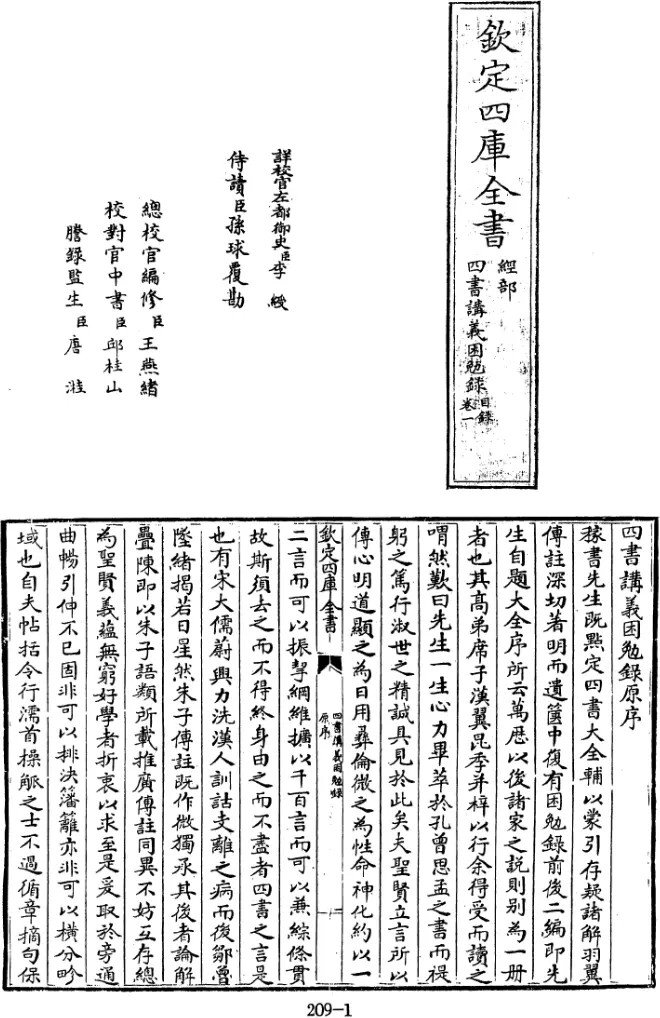 欽定四庫全書
經部
四書講義困勉錄
目錄
卷一
詳校官左都御史臣李綬
侍讀臣孫球覆勘
總校官編修臣王燕緒
校對官中書臣邱桂山
謄錄監生臣唐𣲗
四書講義困勉錄原序
稼書先生既㸃定四書大全輔以蒙引存疑諸解羽翼
傳註深切著明而遺篋中復有困勉錄前後二編即先
生自題大全序所云萬厯以後諸家之説則別為一冊
者也其髙弟席子漢翼昆季并梓以行余得受而讀之
喟然歎曰先生一生心力畢萃於孔曾思孟之書而禔
躬之篤行淑世之精誠具見於此矣夫聖賢立言所以
傳心明道顯之為日用彞倫微之為性命神化約以一
欽定四庫全書
四書講義困勉錄
原序
一
二言而可以振挈綱維擴以千百言而可以兼綜條貫
故斯須去之而不得終身由之而不盡者四書之言是
也有宋大儒蔚興力洗漢人訓詁支離之病而後鄒魯
墜緒揭若日星然朱子傳註既作微獨承其後者論解
疊陳即以朱子語類所載推廣傳註同異不妨互存總
為聖賢義蘊無窮好學者折衷以求至是爰取於旁通
曲暢引伸不已固非可以排決籓籬亦非可以橫分畛
域也自夫帖括令行濡首操觚之士不過循章摘句保
209-1